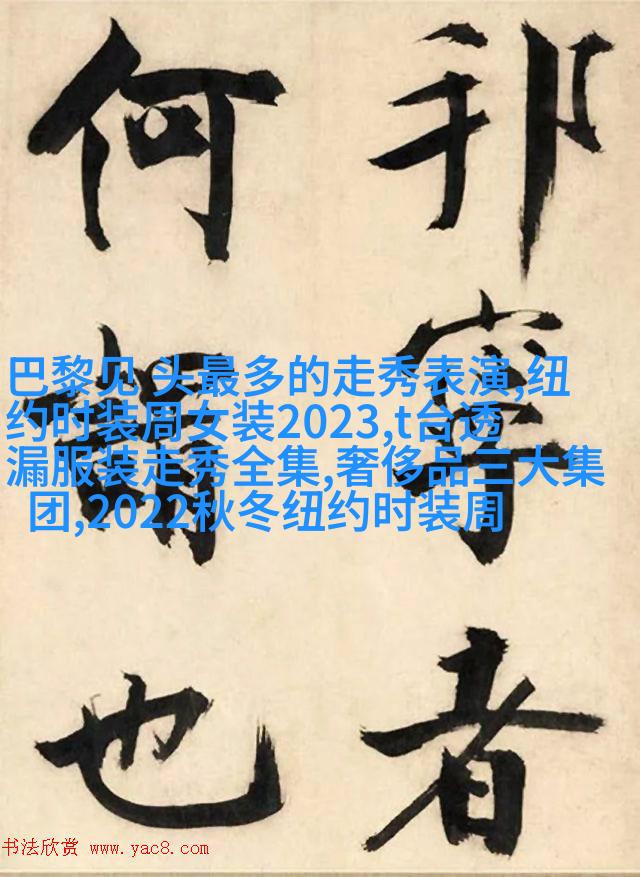 邦寧者
何謂也
巴黎见 头最多的走秀表演,纽
约时装周女装2023,t台透
漏服装走秀全集,奢侈品三大集
团,2022秋冬纽约时装周
书法欣赏 www.yac8.com